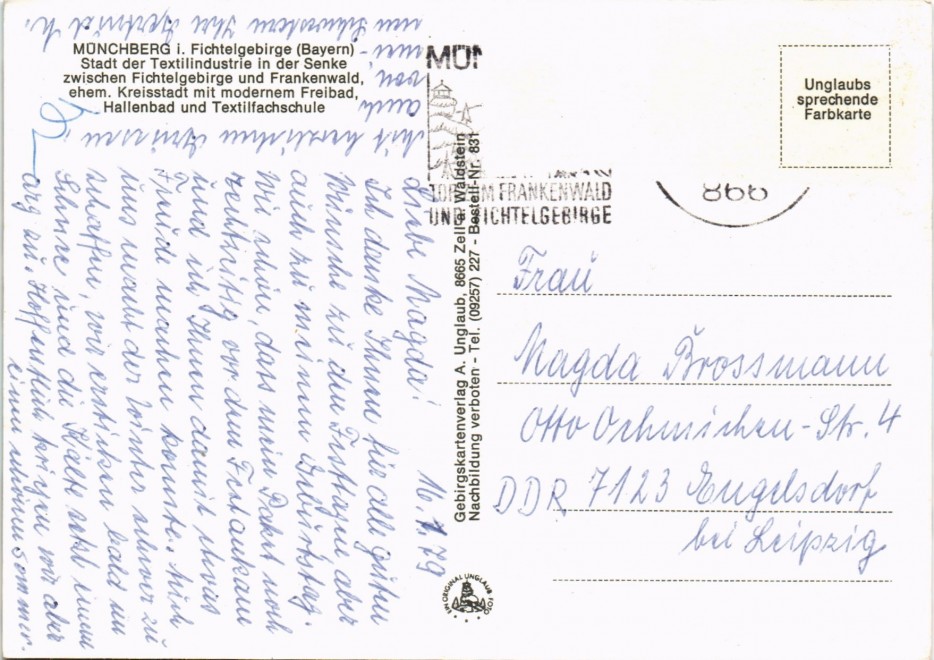 MÜNCHBERG i. Fichtelgebirge (Bayern)
Stadt der Textilindustrie in der Senke
zwischen Fichtelgebirge und Frankenwald,
ehem. Kreisstadt mit modernem Freibad,
Hallenbad und Textilfachschule
16.1.79
Liebe Magda!
Ich danke Ihnen für alle guten
Wünsche zu den Festtagen aber
auch zu meinem Geburtstag.
Wie schön, dass mein Paket noch
rechtzeitig vor dem Fest ankam
und ich Ihnen damit etwas
Freude machen konnte. Auch
uns macht der Winter schwer zu
schaffen, wir ersticken bald im
Schnee und die Kälte setzt einem
arg zu. Hoffentlich kriegen wir aber
einen schönen Sommer.
Mit herzlichen Grüssen,
auch von
meinen Schwestern Ihre Gertrud K.
MÜN
TOR ZUM FRANKENWALD
UND FICHTELGEBIRGE
866
Gebirgskartenverlag A. Unglaub, 8665 Zell a. Waldstein
Nachbildung verboten - Tel. (09257) 227 - Bestell-Nr. 831
EIN ORIGINAL UNGLAUB FOTO
Unglaubs
sprechende
Farbkarte
Frau
Magda Brossmann
Otto Ochmichen-Str. 4
DDR 7123 Engelsdorf
bei Leipzig